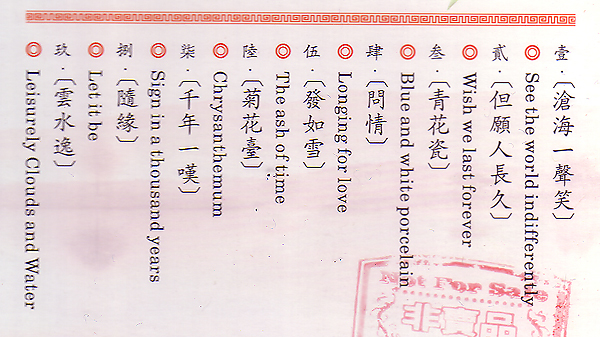 壹·〔滄海一聲笑〕
See the world indifferently
貳·〔但願人長久〕
Wish we last forever
叁·〔青花瓷〕
Blue and white porcelain
肆·〔問情〕
Longing for love
伍·〔發如雪〕
The ash of time
陸·〔菊花臺〕
Chrysanthemum
柒·〔千年一嘆〕
Sign in a thousand years
捌·〔隨緣〕
Let it be
玖·〔雲水逸〕
Leisurely Clouds and Water
Not For Sale
非賣品